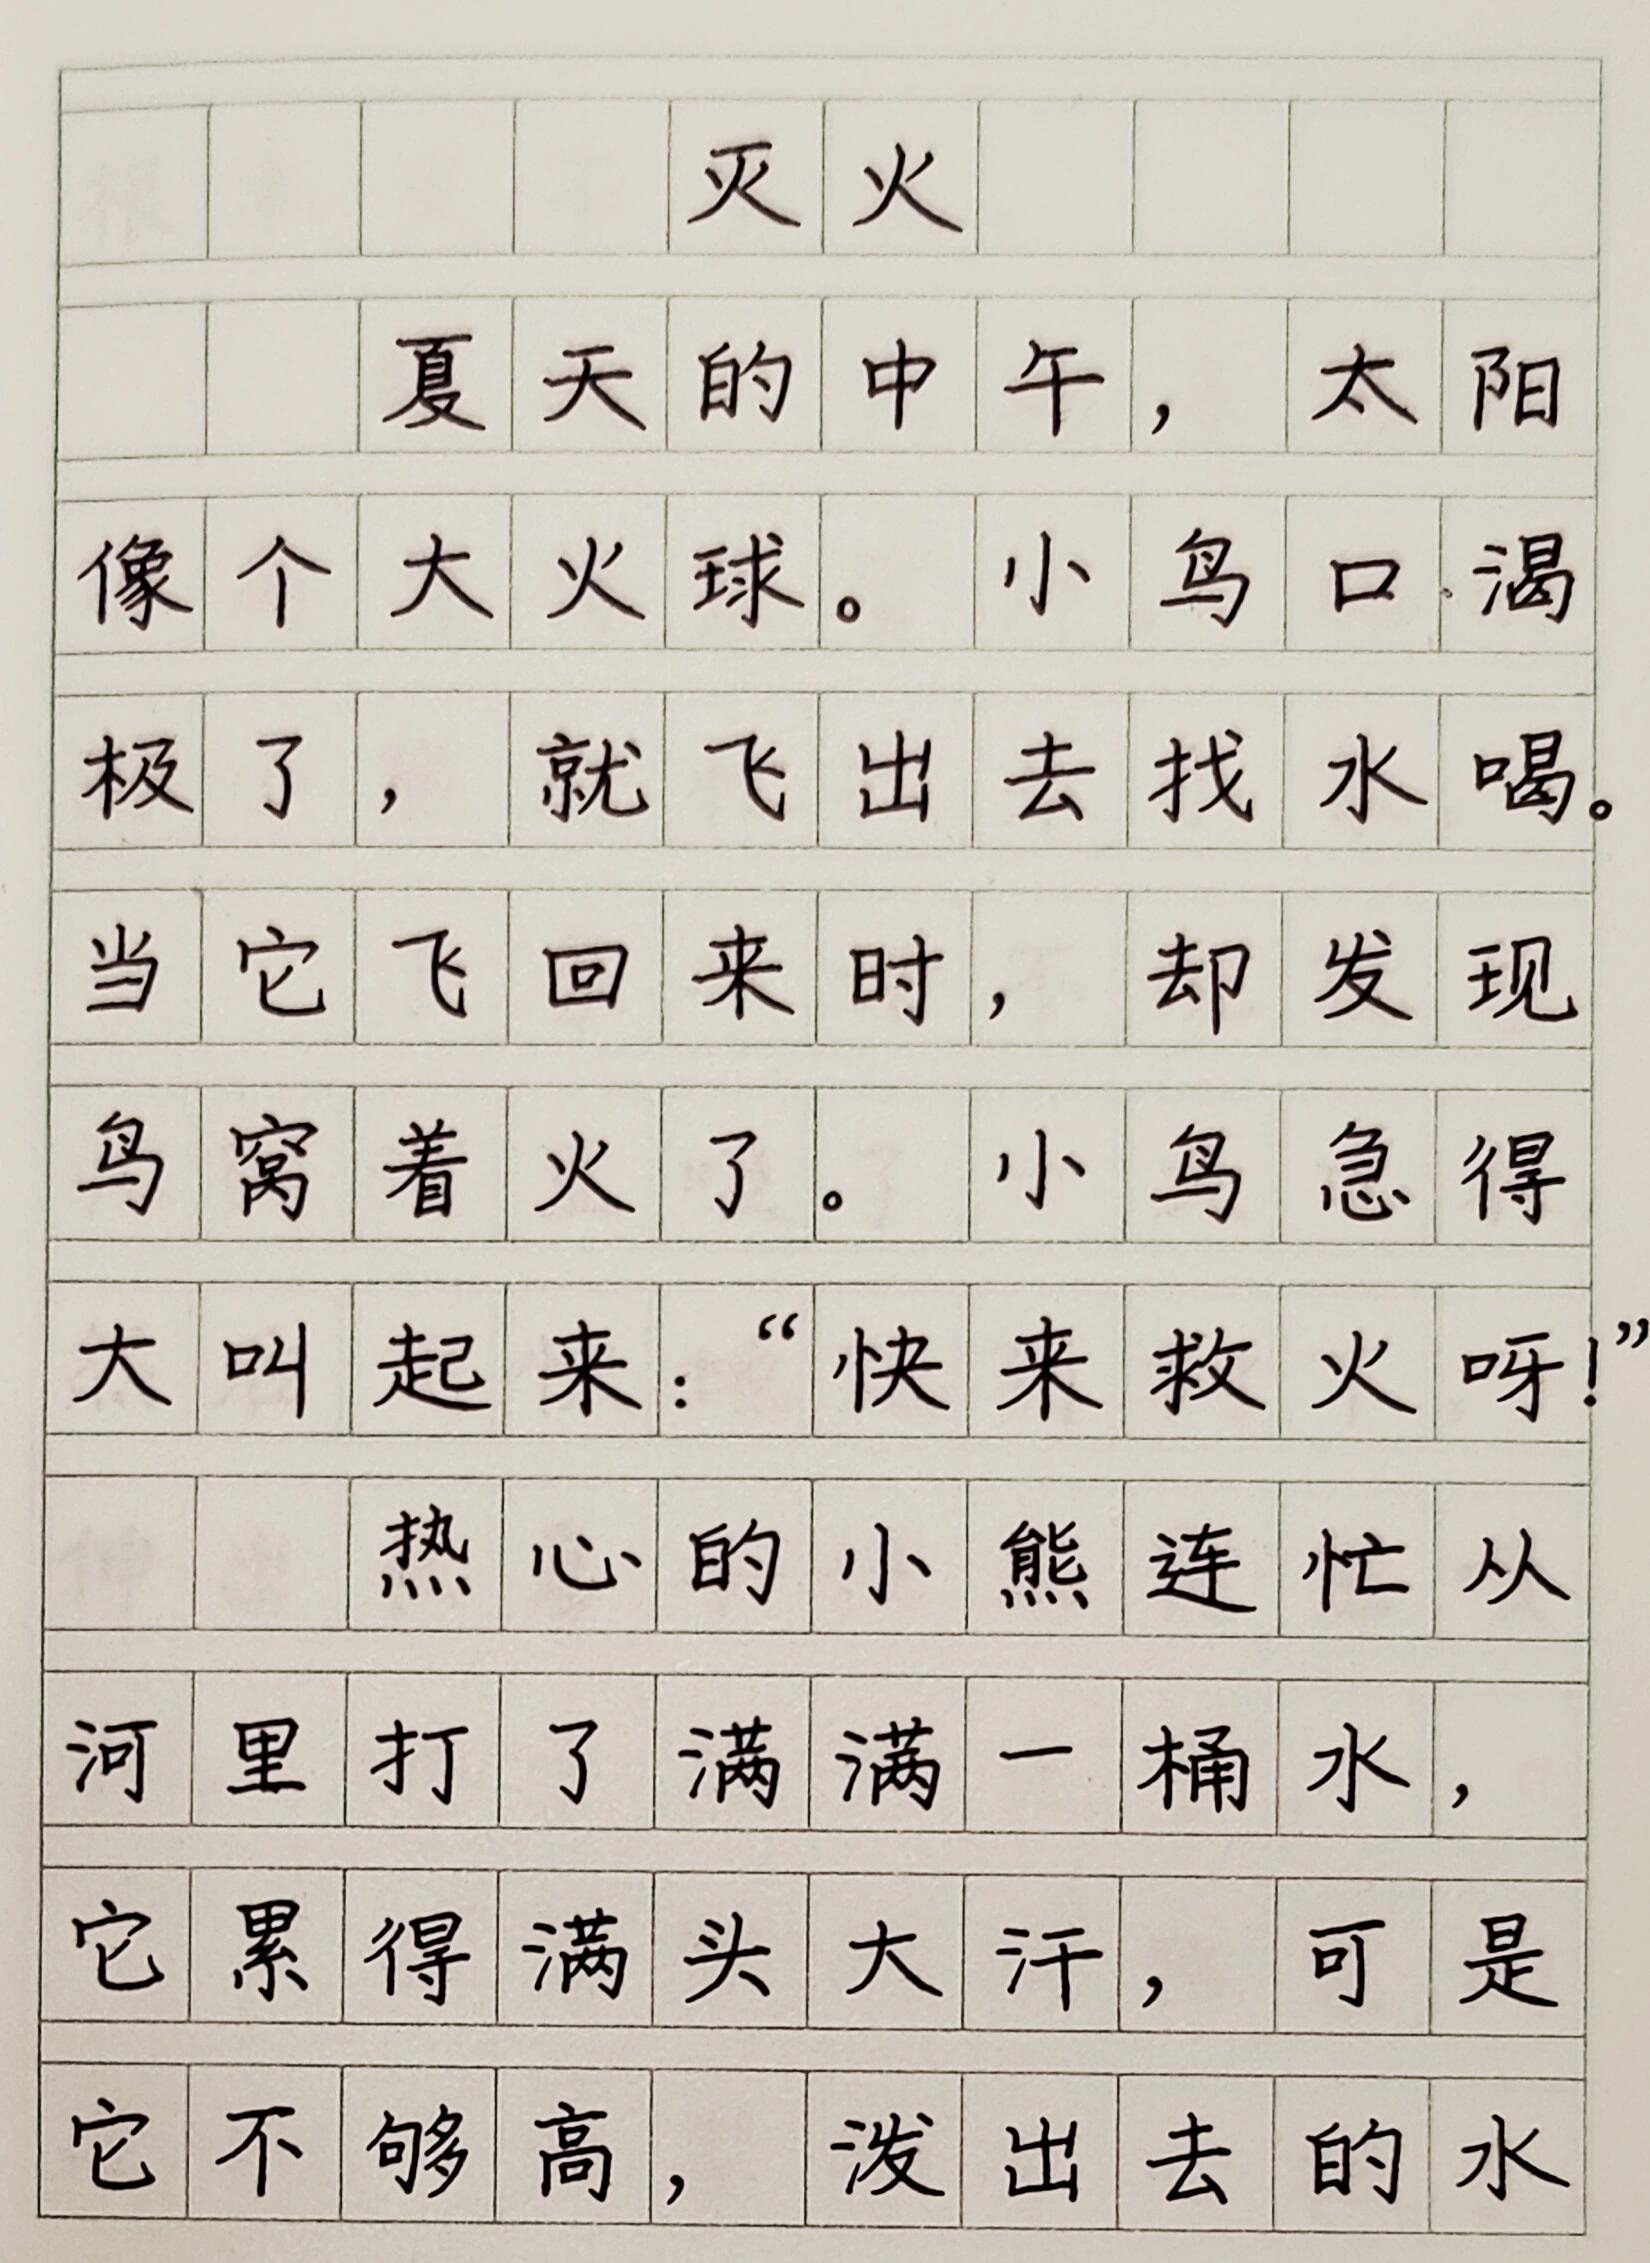 灭火
夏天的中午，太阳
像个大火球。小鸟口渴
极了，就飞出去找水喝。
当它飞回来时，却发现
鸟窝着火了。小鸟急得
大叫起来：“快来救火呀！”
热心的小熊连忙从
河里打了满满一桶水，
它累得满头大汗，可是
它不够高，泼出去的水